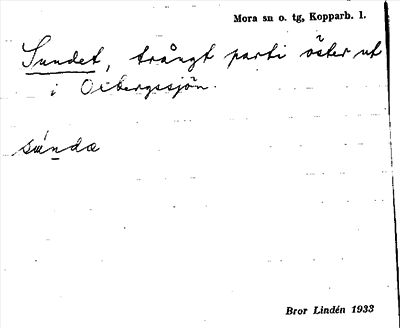 Mora sn o. tg, Kopparb. l.
Sundet, trångt parti öster ut
i Oxbergssjön.
súndæ
Bror Lindén 1933